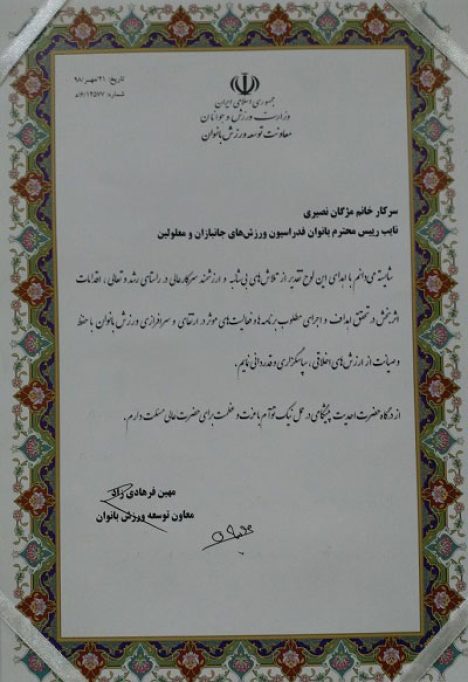 تاریخ: ۲۱ مهر/۹۸
جمهوری اسلامی ایران
وزارت ورزش و جوانان
معاونت توسعه ورزش بانوان
سرکار خانم مژگان نصیری
نایب رییس محترم بانوان فدراسیون ورزش‌های جانبازان و معلولین
شایسته می‌دانم با اهدای این لوح تقدیر از تلاش‌های بی‌شائبه و ارزشمند سرکارعالی در راستای رشد و تعالی، اقدامات
اثربخش در تحقق اهداف و اجرای مطلوب برنامه‌ها و فعالیت‌های موثر در ارتقای و سرافرازی ورزش بانوان با حفظ
و صیانت از ارزش‌های اخلاقی، سپاسگزاری و قدردانی نمایم.
از درگاه حضرت احدیت پیشگامی در عمل نیک توأم با عزت و عظمت برای حضرت عالی مسئلت دارم.
مهین فرهادی زاد
معاون توسعه ورزش بانوان